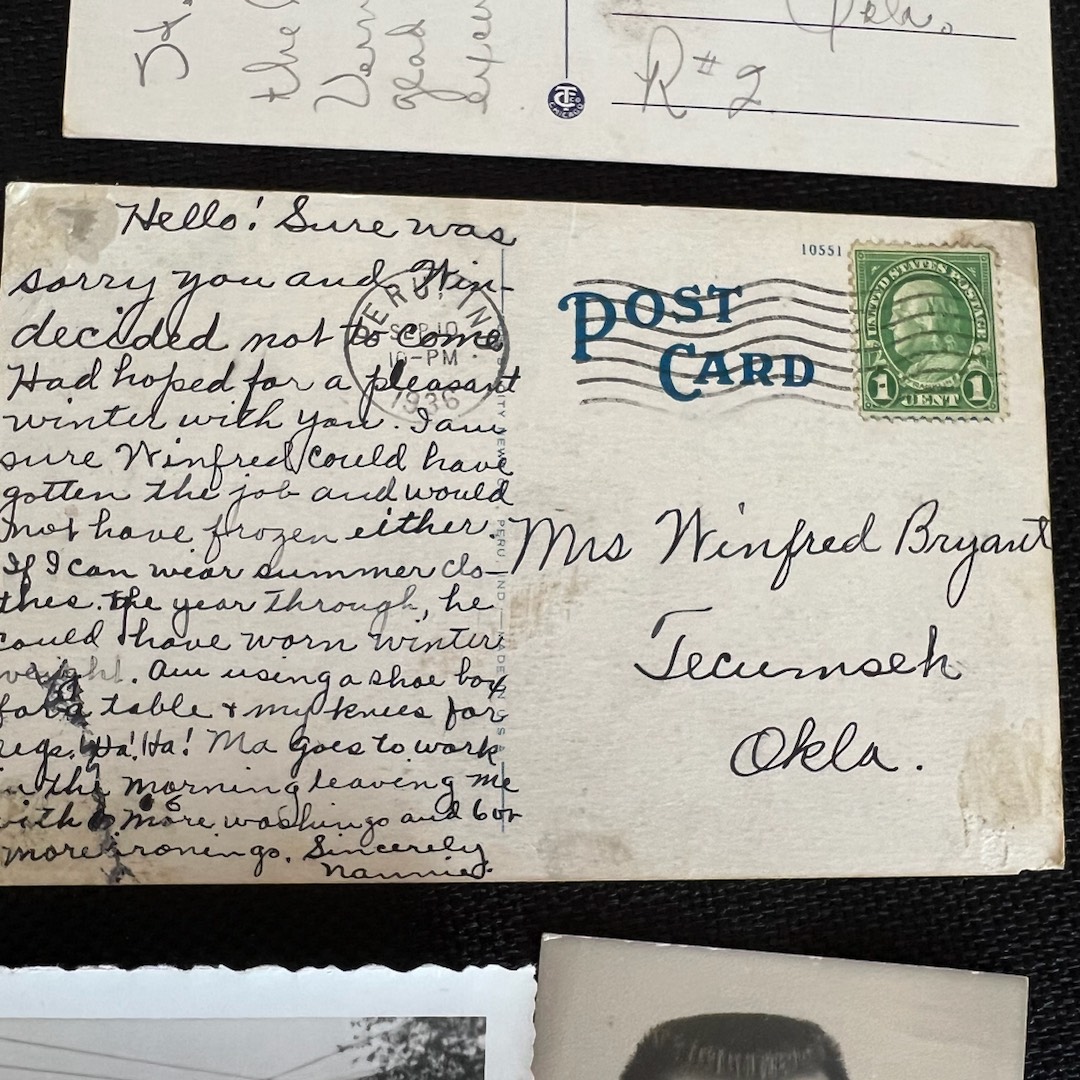 the
glad
Okla.
R#2
CHICAGO
Hello! Sure was
sorry you and Win-
decided not to come
Had hoped for a pleasant
winter with you. I am
sure Winfred could have
gotten the job and would
not have frozen either.
If I can wear summer clo-
thes. the year through, he
could have worn winter
weight. Am using a shoe box
for a table & my knees for
legs. Ha! Ha! Ma goes to work
in the morning leaving me
with 6 more washings and 6 or
more ironings. Sincerely
Nannie.
PERU, IND.
SEP 10
10-PM
1936
PERU, IND.—MADE IN U.S.A.
POST
CARD
10551
UNITED STATES POSTAGE
1 CENT 1
Mrs Winfred Bryant
Tecumseh
Okla.